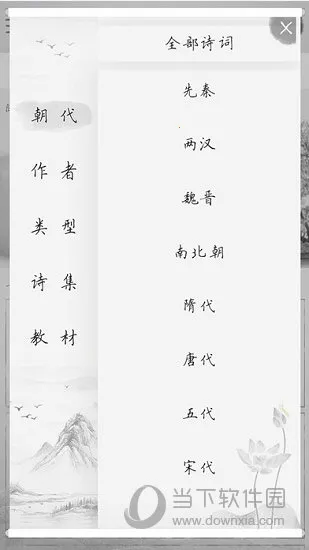 全部诗词
朝代
作者
类型
诗集
教材
先秦
两汉
魏晋
南北朝
隋代
唐代
五代
宋代
当下软件园
www.downxia.com